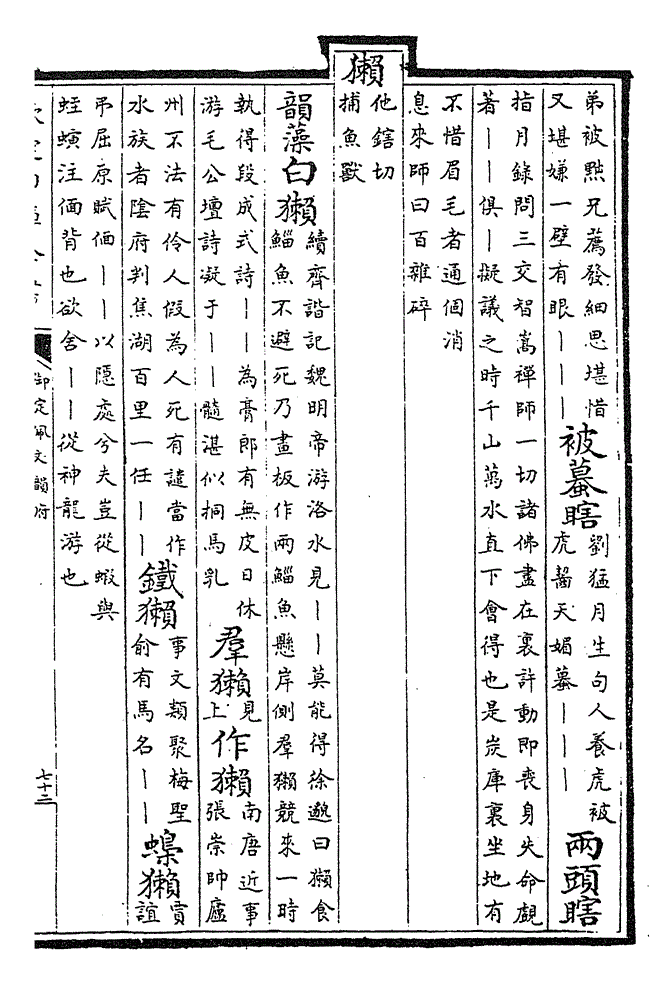 弟被㸃兄薦發細思堪惜
又堪嫌一壁有眼丨丨丨
被蟇瞎
劉猛月生句人養虎被
虎齧天媚蟇丨丨丨
兩頭瞎
指月錄問三交智嵩禪師一切諸佛盡在裏許動即喪身失命覷
著丨丨俱丨擬議之時千山萬水直下會得也是炭庫裏坐地有
不惜眉毛者通個消
息來師曰百雜碎
獺
他鎋切
捕魚獸
韻藻白獺
續齊諧記魏明帝游洛水見丨丨莫能得徐邈曰獺食
鯔魚不避死乃畫板作兩鯔魚懸岸側羣獺競來一時
執得段成式詩丨丨為膏郎有無皮日休
游毛公壇詩凝于丨丨髓湛似挏馬乳
羣獺
見
上
作獺
南唐近事
張崇帥廬
州不法有伶人假為人死有譴當作
水族者陰府判焦湖百里一任丨丨
鐵獺
事文類聚梅聖
俞有馬名丨丨
蟂獺
賈
誼
弔屈原賦偭丨丨以隱處兮夫豈從蝦與
蛭螾注偭背也欲舍丨丨從神龍游也
御定佩文韻府
七十二